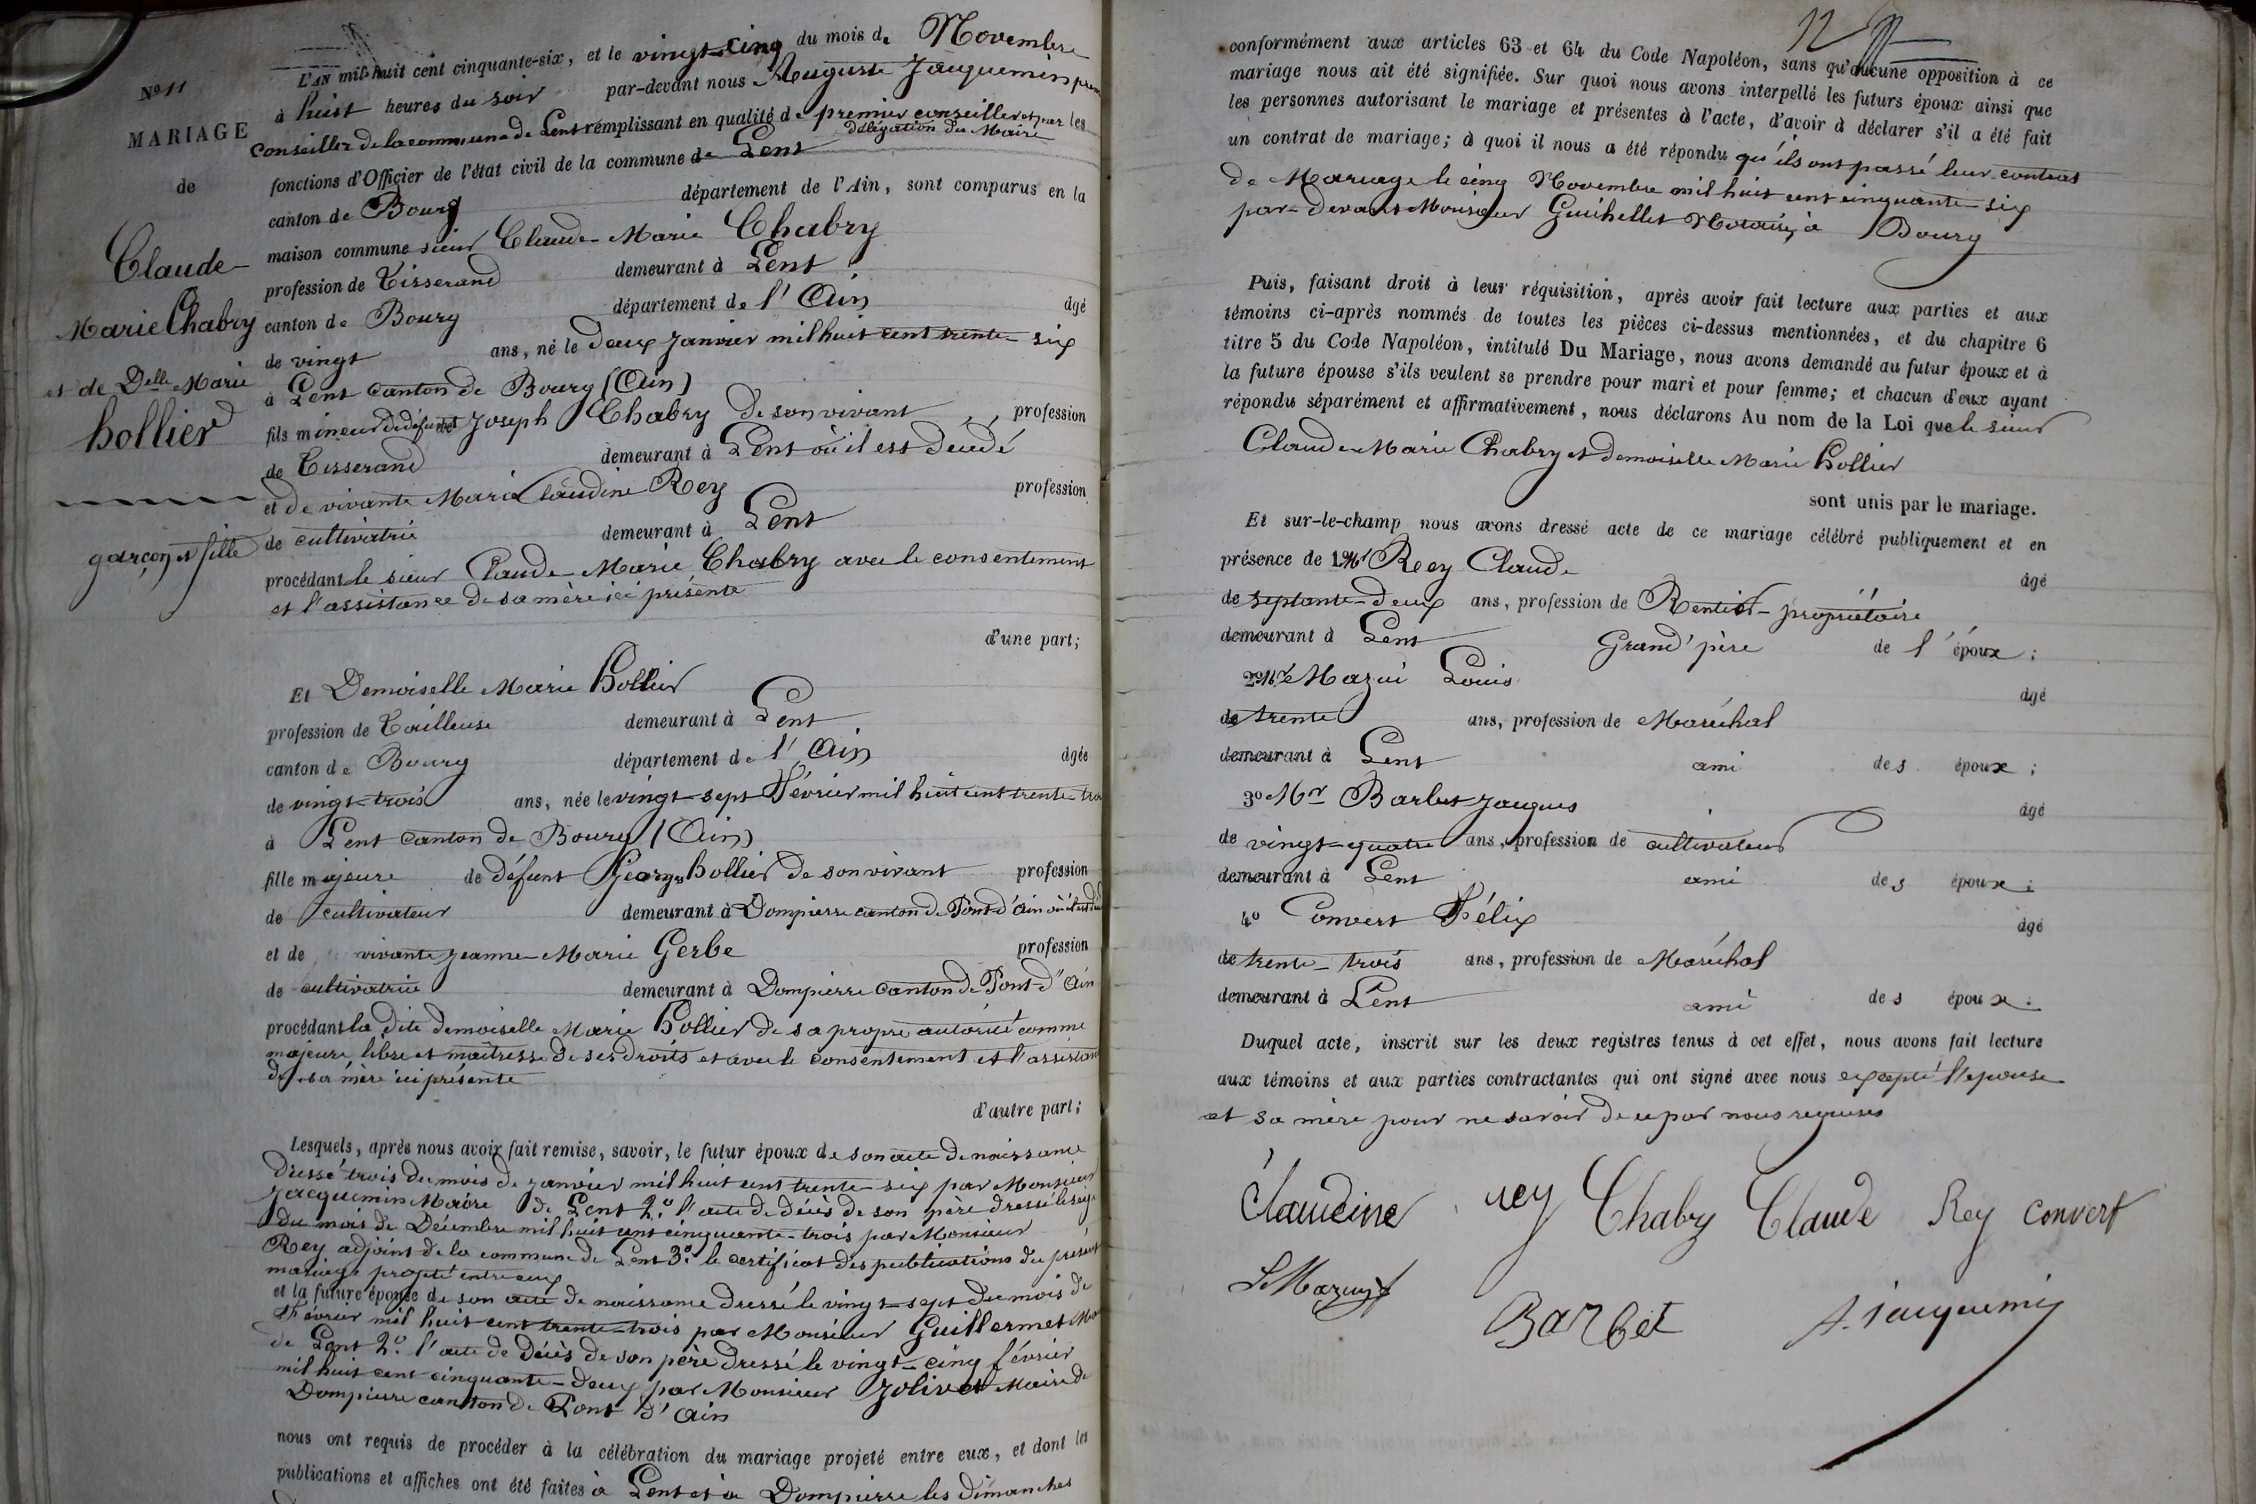 N° 11
MARIAGE
de
Claude-
Marie Chabry
et de Delle Marie
hollier
garçon et fille
L'AN mil huit cent cinquante-six, et le vingt-cinq du mois de Novembre
à huit heures du soir par-devant nous Auguste Jacquemin
conseiller de la commune de Lent remplissant en qualité de premier conseiller et par les
délégation du Maire
fonctions d'Officier de l'état civil de la commune de Lent
canton de Bourg département de l'Ain, sont comparus en la
maison commune sieur Claude-Marie Chabry
profession de Tisserand demeurant à Lent
canton de Bourg département de l'Ain âgé
de vingt ans, né le deux janvier mil huit cent trente-six
à Lent canton de Bourg (Ain)
fils mineur de défunt Joseph Chabry de son vivant profession
de Tisserand demeurant à Lent où il est décédé
et de vivante Marie Claudine Rey profession
de cultivatrice demeurant à Lent
procédant le sieur Claude-Marie Chabry avec le consentement
et l'assistance de sa mère ici présente
d'une part;
Et Demoiselle Marie hollier
profession de Tailleuse demeurant à Lent
canton de Bourg département de l'Ain âgée
de vingt-trois ans, née le vingt-sept Février mil huit cent trente-trois
à Lent canton de Bourg (Ain)
fille majeure de défunt George hollier de son vivant profession
de cultivateur demeurant à Dompierre canton de Pont d'Ain où il est
et de vivante Jeanne-Marie Gerbe profession
de cultivatrice demeurant à Dompierre canton de Pont d'Ain
procédant la dite demoiselle Marie hollier de sa propre autorité comme
majeure libre et maîtresse de ses droits et avec le consentement et l'assistance
de sa mère ici présente
d'autre part;
Lesquels, après nous avoir fait remise, savoir, le futur époux de son acte de naissance
dressé trois du mois de janvier mil huit cent trente-six par Monsieur
Jacquemin Maire de Lent 2° l'acte de décès de son père dressé le
du mois de Décembre mil huit cent cinquante-trois par Monsieur
Rey adjoint de la commune de Lent 3° le certificat des publications du présent
mariage projeté entre eux
et la future épouse de son acte de naissance dressé le vingt-sept du mois de
Février mil huit cent trente-trois par Monsieur Guillermet
de Lent 2° l'acte de décès de son père dressé le vingt-cinq février
mil huit cent cinquante-deux par Monsieur Jolivet Maire de
Dompierre canton de Pont d'Ain
nous ont requis de procéder à la célébration du mariage projeté entre eux, et dont les
publications et affiches ont été faites à Lent et à Dompierre les dimanches
12
conformément aux articles 63 et 64 du Code Napoléon, sans qu'aucune opposition à ce
mariage nous ait été signifiée. Sur quoi nous avons interpellé les futurs époux ainsi que
les personnes autorisant le mariage et présentes à l'acte, d'avoir à déclarer s'il a été fait
un contrat de mariage; à quoi il nous a été répondu qu'ils ont passé leur contrat
de Mariage le cinq Novembre mil huit cent cinquante-six
par-devant Monsieur Guichellet Notaire, à Bourg
Puis, faisant droit à leur réquisition, après avoir fait lecture aux parties et aux
témoins ci-après nommés de toutes les pièces ci-dessus mentionnées, et du chapitre 6
titre 5 du Code Napoléon, intitulé Du Mariage, nous avons demandé au futur époux et à
la future épouse s'ils veulent se prendre pour mari et pour femme; et chacun d'eux ayant
répondu séparément et affirmativement, nous déclarons Au nom de la Loi que le sieur
Claude-Marie Chabry et demoiselle Marie hollier
sont unis par le mariage.
Et sur-le-champ nous avons dressé acte de ce mariage célébré publiquement et en
présence de 1° Mr Rey Claude âgé
de septante-deux ans, profession de Rentier-propriétaire
demeurant à Lent Grand'père de l'époux;
2° Mr Mazui Louis âgé
de trente ans, profession de Maréchal
demeurant à Lent ami des époux;
3° Mr Barbet Jacques âgé
de vingt-quatre ans, profession de cultivateur
demeurant à Lent ami des époux;
4° Convert Félix âgé
de trente-trois ans, profession de Maréchal
demeurant à Lent ami des époux.
Duquel acte, inscrit sur les deux registres tenus à cet effet, nous avons fait lecture
aux témoins et aux parties contractantes qui ont signé avec nous excepté l'épouse
et sa mère pour ne savoir de ce par nous requises
Claudine rey Chabry Claude Rey convert
L Mazuy
Barbet A. jacquemin